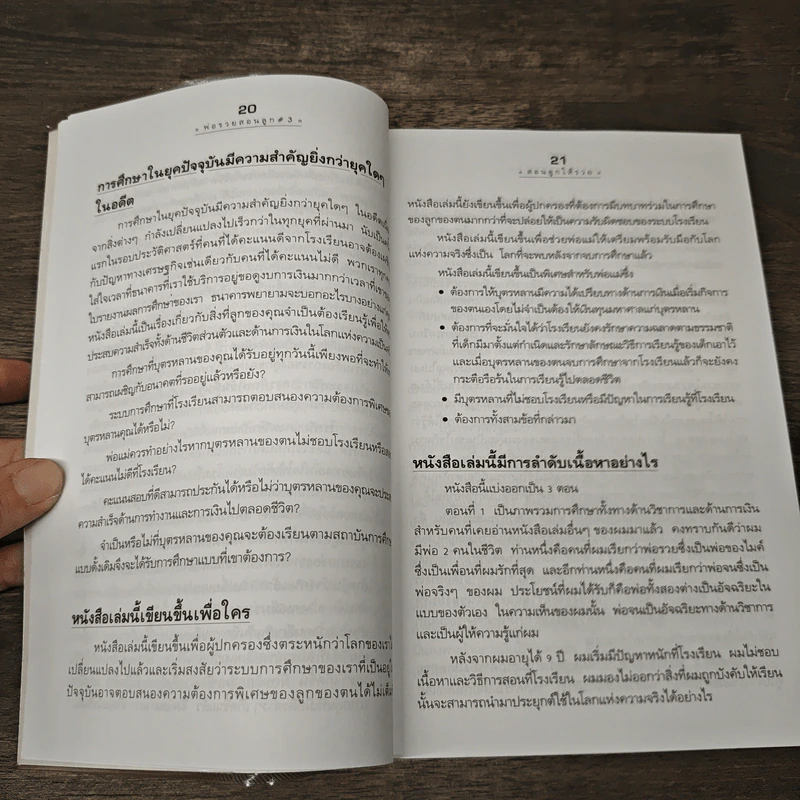 20
พ่อรวยสอนลูก # 3
การศึกษาในยุคปัจจุบันมีความสำคัญยิ่งกว่ายุคใดๆ
ในอดีต
การศึกษาในยุคปัจจุบันมีความสำคัญยิ่งกว่ายุคใดๆ ในอดีต
จากสิ่งต่างๆ กำลังเปลี่ยนแปลงไปเร็วกว่าในทุกยุคที่ผ่านมา นับเป็น
แรกในรอบประวัติศาสตร์ที่คนที่ได้คะแนนดีจากโรงเรียนอาจต้อง
กับปัญหาทางเศรษฐกิจเช่นเดียวกับคนที่ได้คะแนนไม่ดี พวกเราทุก
ใส่ใจเวลาที่ธนาคารที่เราใช้บริการอยู่ขอดูงบการเงินมากกว่าเวลาที่
ใบรายงานผลการศึกษาของเรา ธนาคารพยายามจะบอกอะไรบางอย่าง
หนังสือเล่มนี้เป็นเรื่องเกี่ยวกับสิ่งที่ลูกของคุณจำเป็นต้องเรียนรู้เพื่อให้
ประสบความสำเร็จทั้งด้านชีวิตส่วนตัวและด้านการเงินในโลกแห่งความเป็น
การศึกษาที่บุตรหลานของคุณได้รับอยู่ทุกวันนี้เพียงพอที่จะทำให้
สามารถเผชิญกับอนาคตที่รออยู่แล้วหรือยัง?
ระบบการศึกษาที่โรงเรียนสามารถตอบสนองความต้องการพิเศษ
บุตรหลานคุณได้หรือไม่?
พ่อแม่ควรทำอย่างไรหากบุตรหลานของตนไม่ชอบโรงเรียนหรือ
ได้คะแนนไม่ดีที่โรงเรียน?
คะแนนสอบที่ดีสามารถประกันได้หรือไม่ว่าบุตรหลานของคุณจะ
ความสำเร็จด้านการทำงานและการเงินไปตลอดชีวิต?
จำเป็นหรือไม่ที่บุตรหลานของคุณจะต้องเรียนตามสถาบันการศึกษา
แบบดั้งเดิมจึงจะได้รับการศึกษาแบบที่เขาต้องการ?
หนังสือเล่มนี้เขียนขึ้นเพื่อใคร
หนังสือเล่มนี้เขียนขึ้นเพื่อผู้ปกครองซึ่งตระหนักว่าโลกของเราได้
เปลี่ยนแปลงไปแล้วและเริ่มสงสัยว่าระบบการศึกษาของเราที่เป็นอยู่ใน
ปัจจุบันอาจตอบสนองความต้องการพิเศษของลูกของตนได้ไม่เต็ม
21
สอนลูกให้รวย
หนังสือเล่มนี้ยังเขียนขึ้นเพื่อผู้ปกครองที่ต้องการมีบทบาทร่วมในการศึกษา
ของลูกของตนมากกว่าที่จะปล่อยให้เป็นความรับผิดชอบของระบบโรงเรียน
หนังสือเล่มนี้เขียนขึ้นเพื่อช่วยพ่อแม่ให้เตรียมพร้อมรับมือกับโลก
แห่งความจริงซึ่งเป็น โลกที่จะพบหลังจากจบการศึกษาแล้ว
หนังสือเล่มนี้เขียนขึ้นเป็นพิเศษสำหรับพ่อแม่ซึ่ง
• ต้องการให้บุตรหลานมีความได้เปรียบทางด้านการเงินเมื่อเริ่มกิจการ
ของตนเองโดยไม่จำเป็นต้องให้เงินทุนมหาศาลแก่บุตรหลาน
• ต้องการที่จะมั่นใจได้ว่าโรงเรียนยังคงรักษาความฉลาดตามธรรมชาติ
ที่เด็กมีมาตั้งแต่กำเนิดและรักษาลักษณะวิธีการเรียนรู้ของเด็กเอาไว้
และเมื่อบุตรหลานของตนจบการศึกษาจากโรงเรียนแล้วก็จะยังคง
กระตือรือร้นในการเรียนรู้ไปตลอดชีวิต
• มีบุตรหลานที่ไม่ชอบโรงเรียนหรือมีปัญหาในการเรียนรู้ที่โรงเรียน
• ต้องการทั้งสามข้อที่กล่าวมา
หนังสือเล่มนี้มีการลำดับเนื้อหาอย่างไร
หนังสือนี้แบ่งออกเป็น 3 ตอน
ตอนที่ 1 เป็นภาพรวมการศึกษาทั้งทางด้านวิชาการและด้านการเงิน
สำหรับคนที่เคยอ่านหนังสือเล่มอื่นๆ ของผมมาแล้ว คงทราบกันดีว่าผม
มีพ่อ 2 คนในชีวิต ท่านหนึ่งคือคนที่ผมเรียกว่าพ่อรวยซึ่งเป็นพ่อของไมค์
ซึ่งเป็นเพื่อนที่ผมรักที่สุด และอีกท่านหนึ่งคือคนที่ผมเรียกว่าพ่อจนซึ่งเป็น
พ่อจริงๆ ของผม ประโยชน์ที่ผมได้รับก็คือพ่อทั้งสองต่างเป็นอัจฉริยะใน
แบบของตัวเอง ในความเห็นของผมนั้น พ่อจนเป็นอัจฉริยะทางด้านวิชาการ
และเป็นผู้ให้ความรู้แก่ผม
หลังจากผมอายุได้ 9 ปี ผมเริ่มมีปัญหาหนักที่โรงเรียน ผมไม่ชอบ
เนื้อหาและวิธีการสอนที่โรงเรียน ผมมองไม่ออกว่าสิ่งที่ผมถูกบังคับให้เรียน
นั้นจะสามารถนำมาประยุกต์ใช้ในโลกแห่งความจริงได้อย่างไร